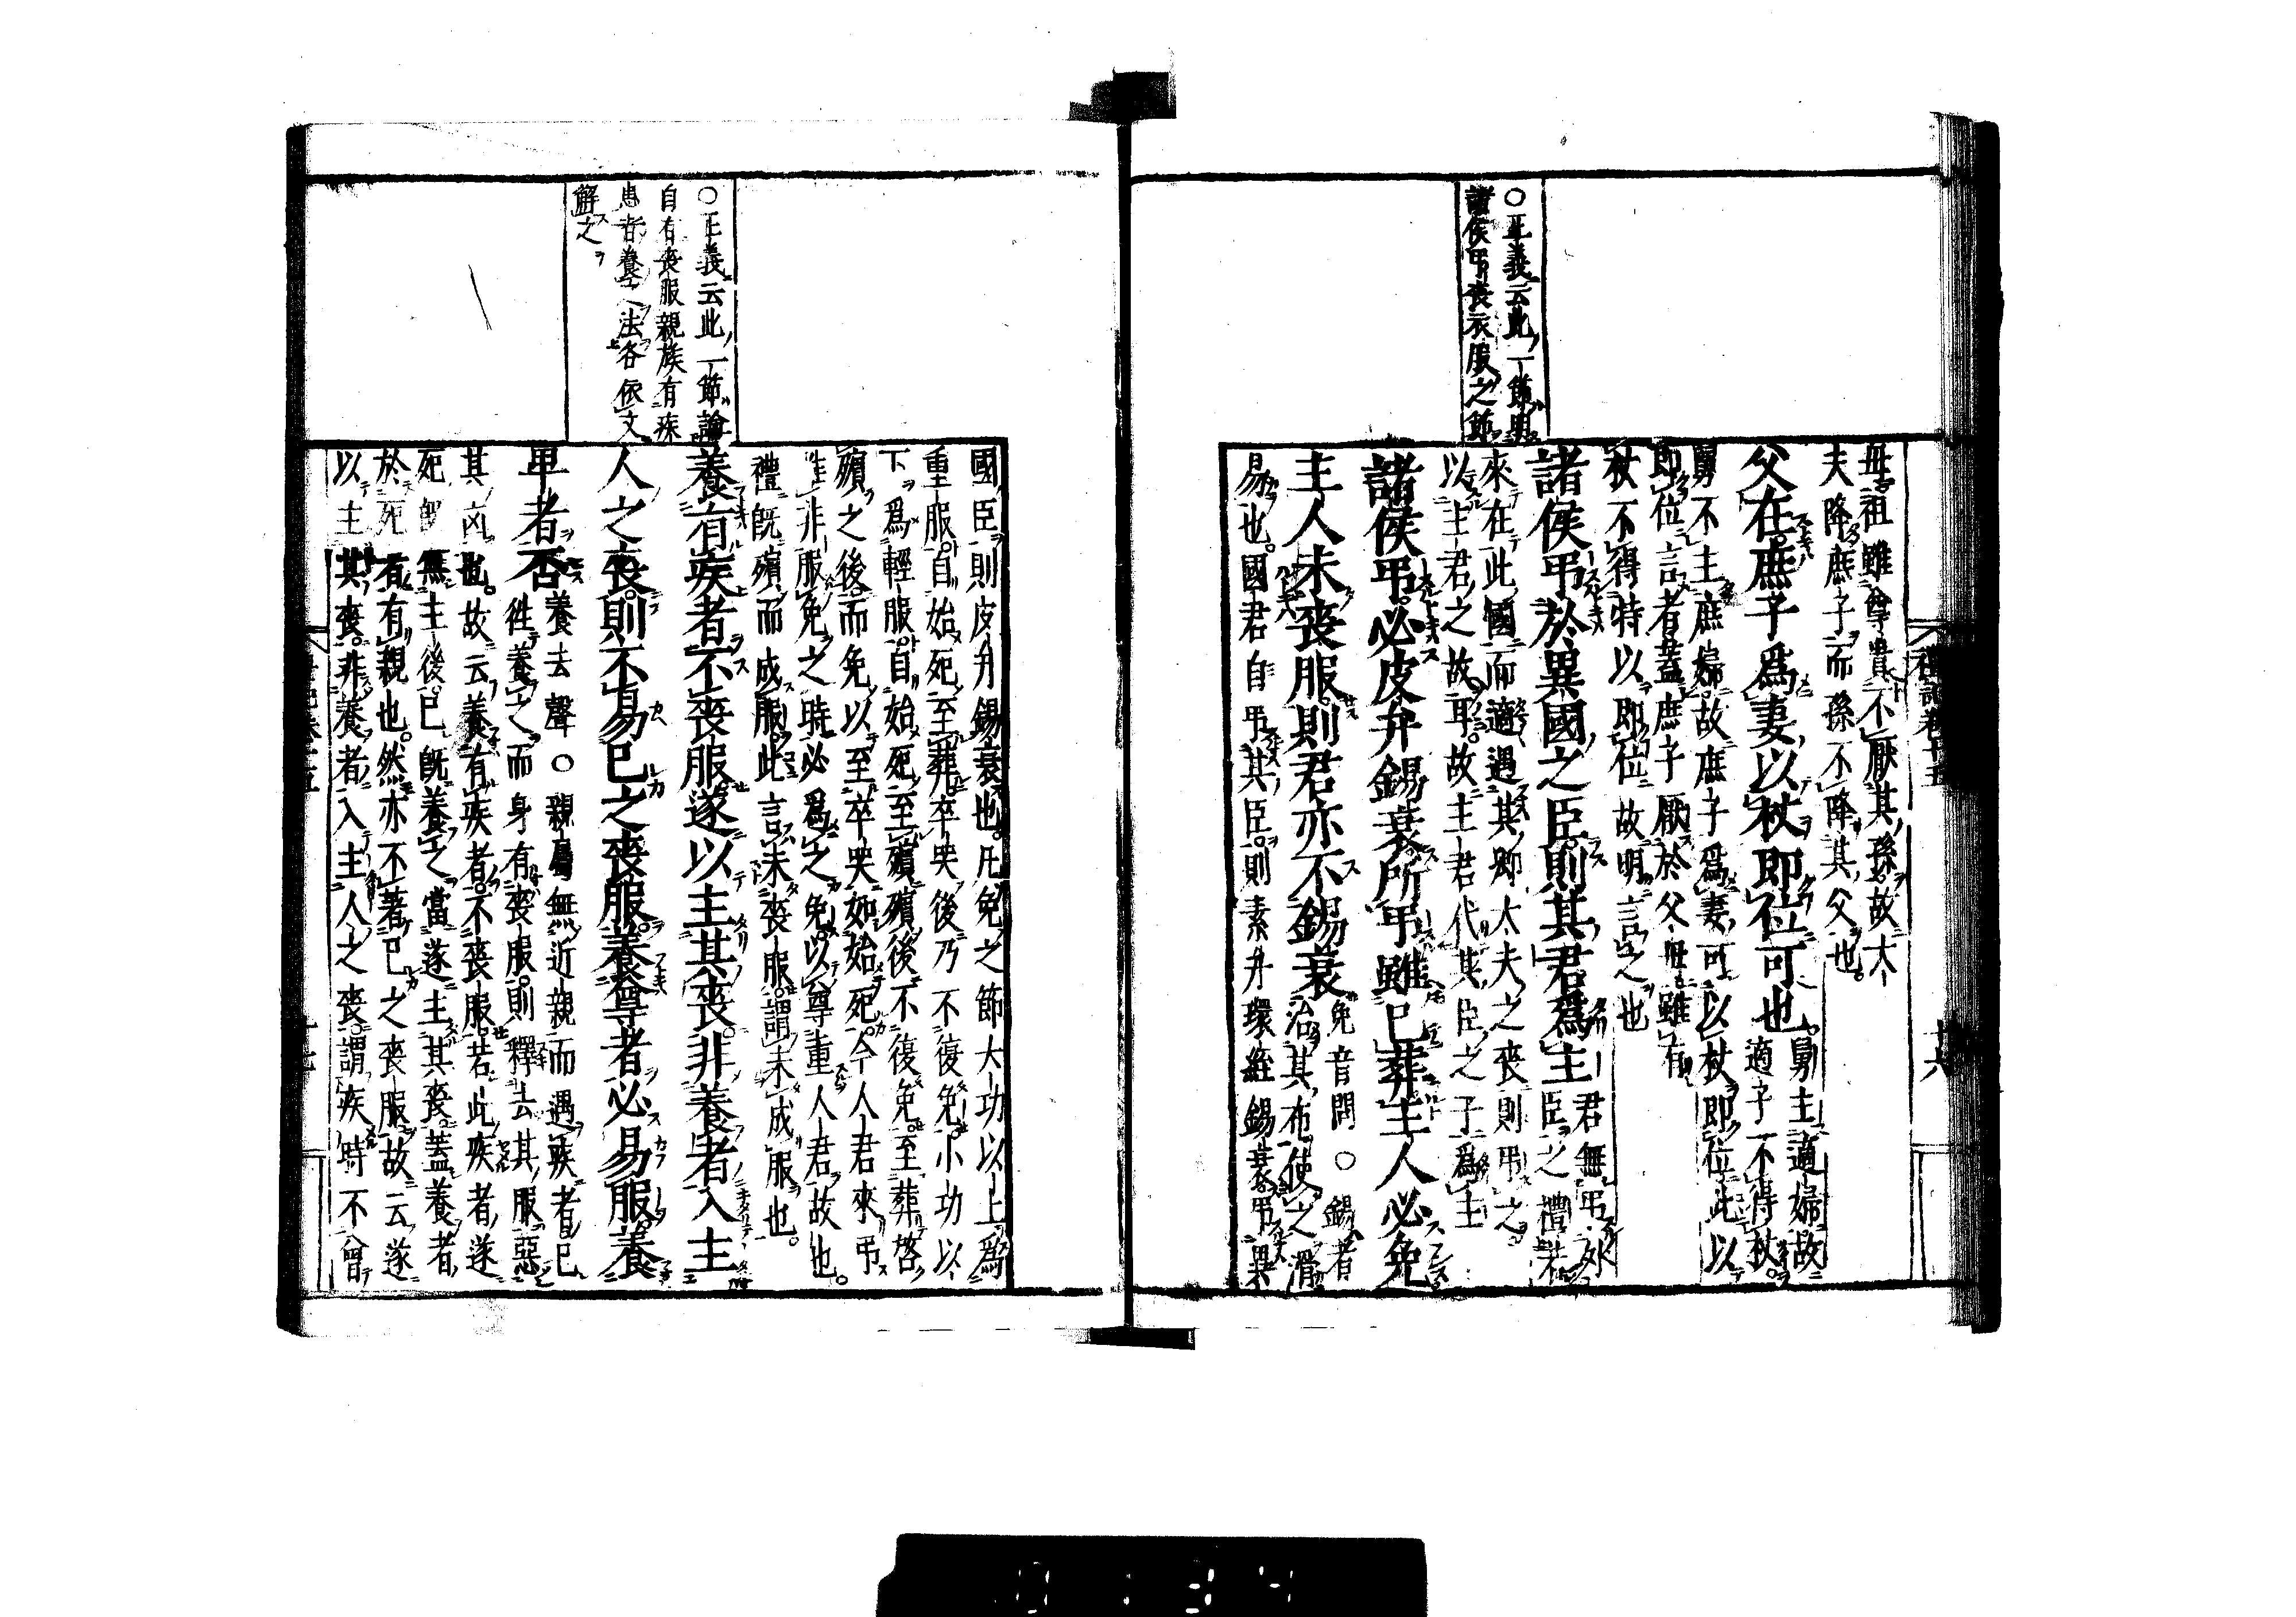 ○正義云此一節明
諸侯弔喪衣服之節
母祖雖尊貴不厭其孫故大
夫降庶子而孫不降其父也
父在庶子爲妻以杖即位可也舅主適婦故
適子不得杖
舅不主庶婦故庶子爲妻可以杖即位此以
即位言者蓋庶子厭於父母雖有
杖不得特以即位故明言之也
諸侯弔於異國之臣則其君爲主君無弔外
臣之禮若
來在此國而適遇其卿大夫之喪則弔之
以主君之故耳故主君代其臣之子爲主
諸侯弔必皮弁錫衰所弔雖已葬主人必免
主人未喪服則君亦不錫衰免音問○錫者
治其布使之滑
易也國君自弔其臣則素弁環絰錫衰弔異
禮記卷十五
十六
○正義云此一節論
自有喪服親族有疾
患者養之法各依文
解之
國臣則皮弁錫衰也凡免之節大功以上爲
重服自始死至葬卒哭後乃不復免小功以
下爲輕服自始死至殯殯後不復免至葬啓
殯之後而免以至卒哭如始死今人君來弔
雖非服免之時必爲之免以尊重人君故也
禮既殯而成服此言未喪服謂未成服也
養有疾者不喪服遂以主其喪非養者入主
人之喪則不易已之喪服養尊者必易服養
卑者否養去聲○親屬無近親而遇疾者已
徃養之而身有喪服則釋去其服惡
其凶也故云養有疾者不喪服若此疾者遂
死既無主後已既養之當遂主其喪蓋養者
於死者有親也然亦不著已之喪服故云遂
以主其喪非養者入主人之喪謂疾時不曾